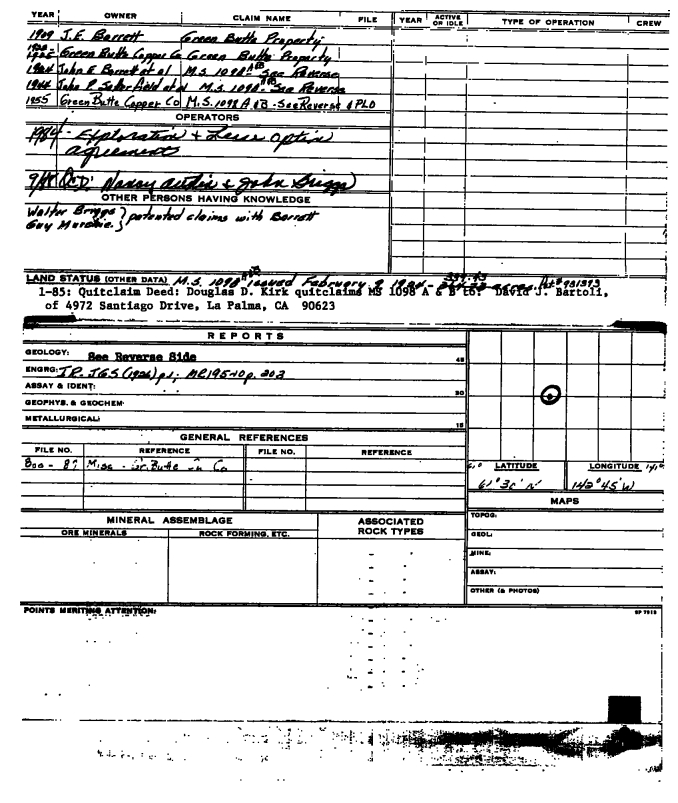 YEAR OWNER CLAIM NAME FILE YEAR ACTIVE OR IDLE TYPE OF OPERATION CREW
1909 J.E. Barrett Green Butte Property
1925 Green Butte Copper Co Green Butte Property
John E Barrett et al M.S. 1098 A&B See Reverse
1944 John P. et al M.S. 1098 See Reverse
1955 Green Butte Copper Co M.S. 1098 A & B - See Reverse
OPERATORS
1984 - Exploration + Lease Option
agreement
Nancy & John
OTHER PERSONS HAVING KNOWLEDGE
Walter Briggs } patented claims with Barrett
Guy
LAND STATUS (OTHER DATA) M.S. 1098 A&B issued February
1-85: Quitclaim Deed: Douglas D. Kirk quitclaims MS 1098 A & B to: David J. Bartoli,
of 4972 Santiago Drive, La Palma, CA 90623
REPORTS
GEOLOGY: See Reverse Side 45
ENGRG: I.R. JGS (1926) p1; MR195-10 p. 203
ASSAY & IDENT: 30
GEOPHYS. & GEOCHEM:
METALLURGICAL: 15
GENERAL REFERENCES
FILE NO. REFERENCE FILE NO. REFERENCE
Misc - Gr. Butte Cu Co
61° LATITUDE LONGITUDE 141°
61° 30' N 142° 45' W
MAPS
MINERAL ASSEMBLAGE ASSOCIATED ROCK TYPES
ORE MINERALS ROCK FORMING, ETC.
TOPOG:
GEOL:
MINE:
ASSAY:
OTHER (& PHOTOS)
POINTS MERITING ATTENTION: